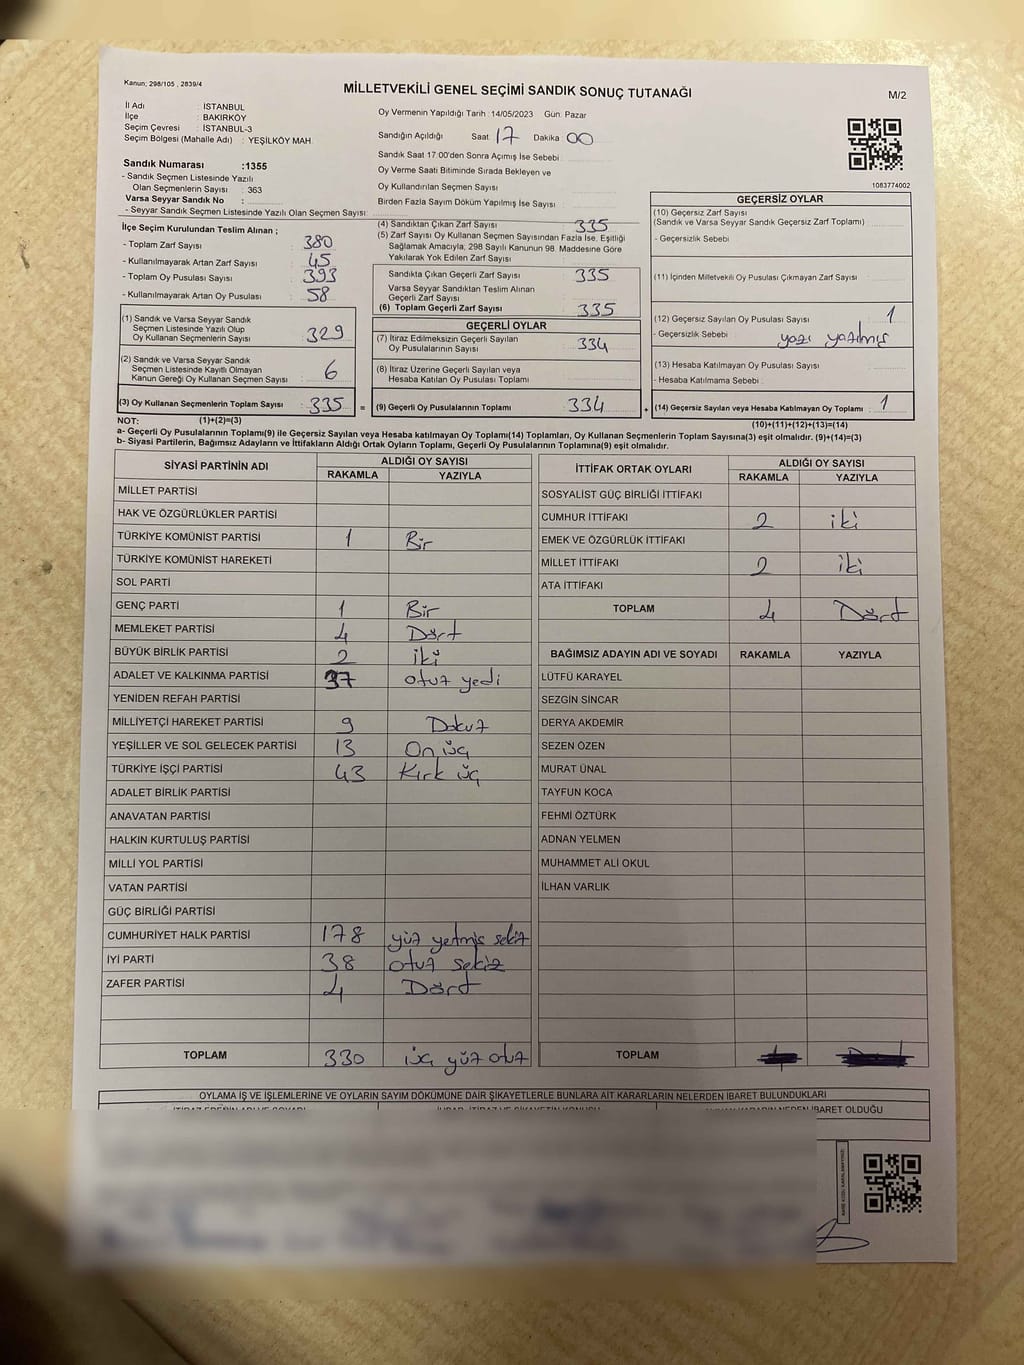 Kanun; 298/105 , 2839/4
MİLLETVEKİLİ GENEL SEÇİMİ SANDIK SONUÇ TUTANAĞI
M/2
İl Adı : İSTANBUL
İlçe : BAKIRKÖY
Seçim Çevresi : İSTANBUL-3
Seçim Bölgesi (Mahalle Adı) : YEŞİLKÖY MAH.
Oy Vermenin Yapıldığı Tarih :14/05/2023 Gün: Pazar
Sandığın Açıldığı Saat 17 Dakika 00
Sandık Saat 17:00'den Sonra Açımış İse Sebebi :
Oy Verme Saati Bitiminde Sırada Bekleyen ve
Oy Kullandırılan Seçmen Sayısı
Birden Fazla Sayım Döküm Yapılmış İse Sayısı :
1083774002
Sandık Numarası :1355
- Sandık Seçmen Listesinde Yazılı
Olan Seçmenlerin Sayısı : 363
Varsa Seyyar Sandık No :
- Seyyar Sandık Seçmen Listesinde Yazılı Olan Seçmen Sayısı:
İlçe Seçim Kurulundan Teslim Alınan ;
- Toplam Zarf Sayısı : 380
- Kullanılmayarak Artan Zarf Sayısı : 45
- Toplam Oy Pusulası Sayısı : 393
- Kullanılmayarak Artan Oy Pusulası : 58
(1) Sandık ve Varsa Seyyar Sandık
Seçmen Listesinde Yazılı Olup
Oy Kullanan Seçmenlerin Sayısı : 329
(2) Sandık ve Varsa Seyyar Sandık
Seçmen Listesinde Kayıtlı Olmayan
Kanun Gereği Oy Kullanan Seçmen Sayısı : 6
(3) Oy Kullanan Seçmenlerin Toplam Sayısı : 335 =
(4) Sandıktan Çıkan Zarf Sayısı : 335
(5) Zarf Sayısı Oy Kullanan Seçmen Sayısından Fazla İse, Eşitliği
Sağlamak Amacıyla, 298 Sayılı Kanunun 98. Maddesine Göre
Yakılarak Yok Edilen Zarf Sayısı :
Sandıkta Çıkan Geçerli Zarf Sayısı : 335
Varsa Seyyar Sandıktan Teslim Alınan
Geçerli Zarf Sayısı :
(6) Toplam Geçerli Zarf Sayısı : 335
GEÇERLİ OYLAR
(7) İtiraz Edilmeksizin Geçerli Sayılan
Oy Pusulalarının Sayısı : 334
(8) İtiraz Üzerine Geçerli Sayılan veya
Hesaba Katılan Oy Pusulası Toplamı :
(9) Geçerli Oy Pusulalarının Toplamı : 334 +
GEÇERSİZ OYLAR
(10) Geçersiz Zarf Sayısı
(Sandık ve Varsa Seyyar Sandık Geçersiz Zarf Toplamı) :
- Geçersizlik Sebebi :
(11) İçinden Milletvekili Oy Pusulası Çıkmayan Zarf Sayısı :
(12) Geçersiz Sayılan Oy Pusulası Sayısı : 1
- Geçersizlik Sebebi : yazı yazılmış
(13) Hesaba Katılmayan Oy Pusulası Sayısı :
- Hesaba Katılmama Sebebi :
(14) Geçersiz Sayılan veya Hesaba Katılmayan Oy Toplamı : 1
NOT: (1)+(2)=(3) (10)+(11)+(12)+(13)=(14)
a- Geçerli Oy Pusulalarının Toplamı(9) ile Geçersiz Sayılan veya Hesaba katılmayan Oy Toplamı(14) Toplamları, Oy Kullanan Seçmenlerin Toplam Sayısına(3) eşit olmalıdır. (9)+(14)=(3)
b- Siyasi Partilerin, Bağımsız Adayların ve İttifakların Aldığı Oyların Toplamı, Geçerli Oy Pusulalarının Toplamına(9) eşit olmalıdır.
SİYASİ PARTİNİN ADI ALDIĞI OY SAYISI
RAKAMLA YAZIYLA
MİLLET PARTİSİ
HAK VE ÖZGÜRLÜKLER PARTİSİ
TÜRKİYE KOMÜNİST PARTİSİ 1 Bir
TÜRKİYE KOMÜNİST HAREKETİ
SOL PARTİ
GENÇ PARTİ 1 Bir
MEMLEKET PARTİSİ 4 Dört
BÜYÜK BİRLİK PARTİSİ 2 iki
ADALET VE KALKINMA PARTİSİ 37 otuz yedi
YENİDEN REFAH PARTİSİ
MİLLİYETÇİ HAREKET PARTİSİ 9 Dokuz
YEŞİLLER VE SOL GELECEK PARTİSİ 13 On üç
TÜRKİYE İŞÇİ PARTİSİ 43 Kırk üç
ADALET BİRLİK PARTİSİ
ANAVATAN PARTİSİ
HALKIN KURTULUŞ PARTİSİ
MİLLİ YOL PARTİSİ
VATAN PARTİSİ
GÜÇ BİRLİĞİ PARTİSİ
CUMHURİYET HALK PARTİSİ 178 yüz yetmiş sekiz
İYİ PARTİ 38 otuz sekiz
ZAFER PARTİSİ 4 Dört
TOPLAM 330 üç yüz otuz
İTTİFAK ORTAK OYLARI ALDIĞI OY SAYISI
RAKAMLA YAZIYLA
SOSYALİST GÜÇ BİRLİĞİ İTTİFAKI
CUMHUR İTTİFAKI 2 iki
EMEK VE ÖZGÜRLÜK İTTİFAKI
MİLLET İTTİFAKI 2 iki
ATA İTTİFAKI
TOPLAM 4 Dört
BAĞIMSIZ ADAYIN ADI VE SOYADI RAKAMLA YAZIYLA
LÜTFÜ KARAYEL
SEZGİN SİNCAR
DERYA AKDEMİR
SEZEN ÖZEN
MURAT ÜNAL
TAYFUN KOCA
FEHMİ ÖZTÜRK
ADNAN YELMEN
MUHAMMET ALİ OKUL
İLHAN VARLIK
TOPLAM
OYLAMA İŞ VE İŞLEMLERİNE VE OYLARIN SAYIM DÖKÜMÜNE DAİR ŞİKAYETLERLE BUNLARA AİT KARARLARIN NELERDEN İBARET BULUNDUKLARI
İBARET OLDUĞU